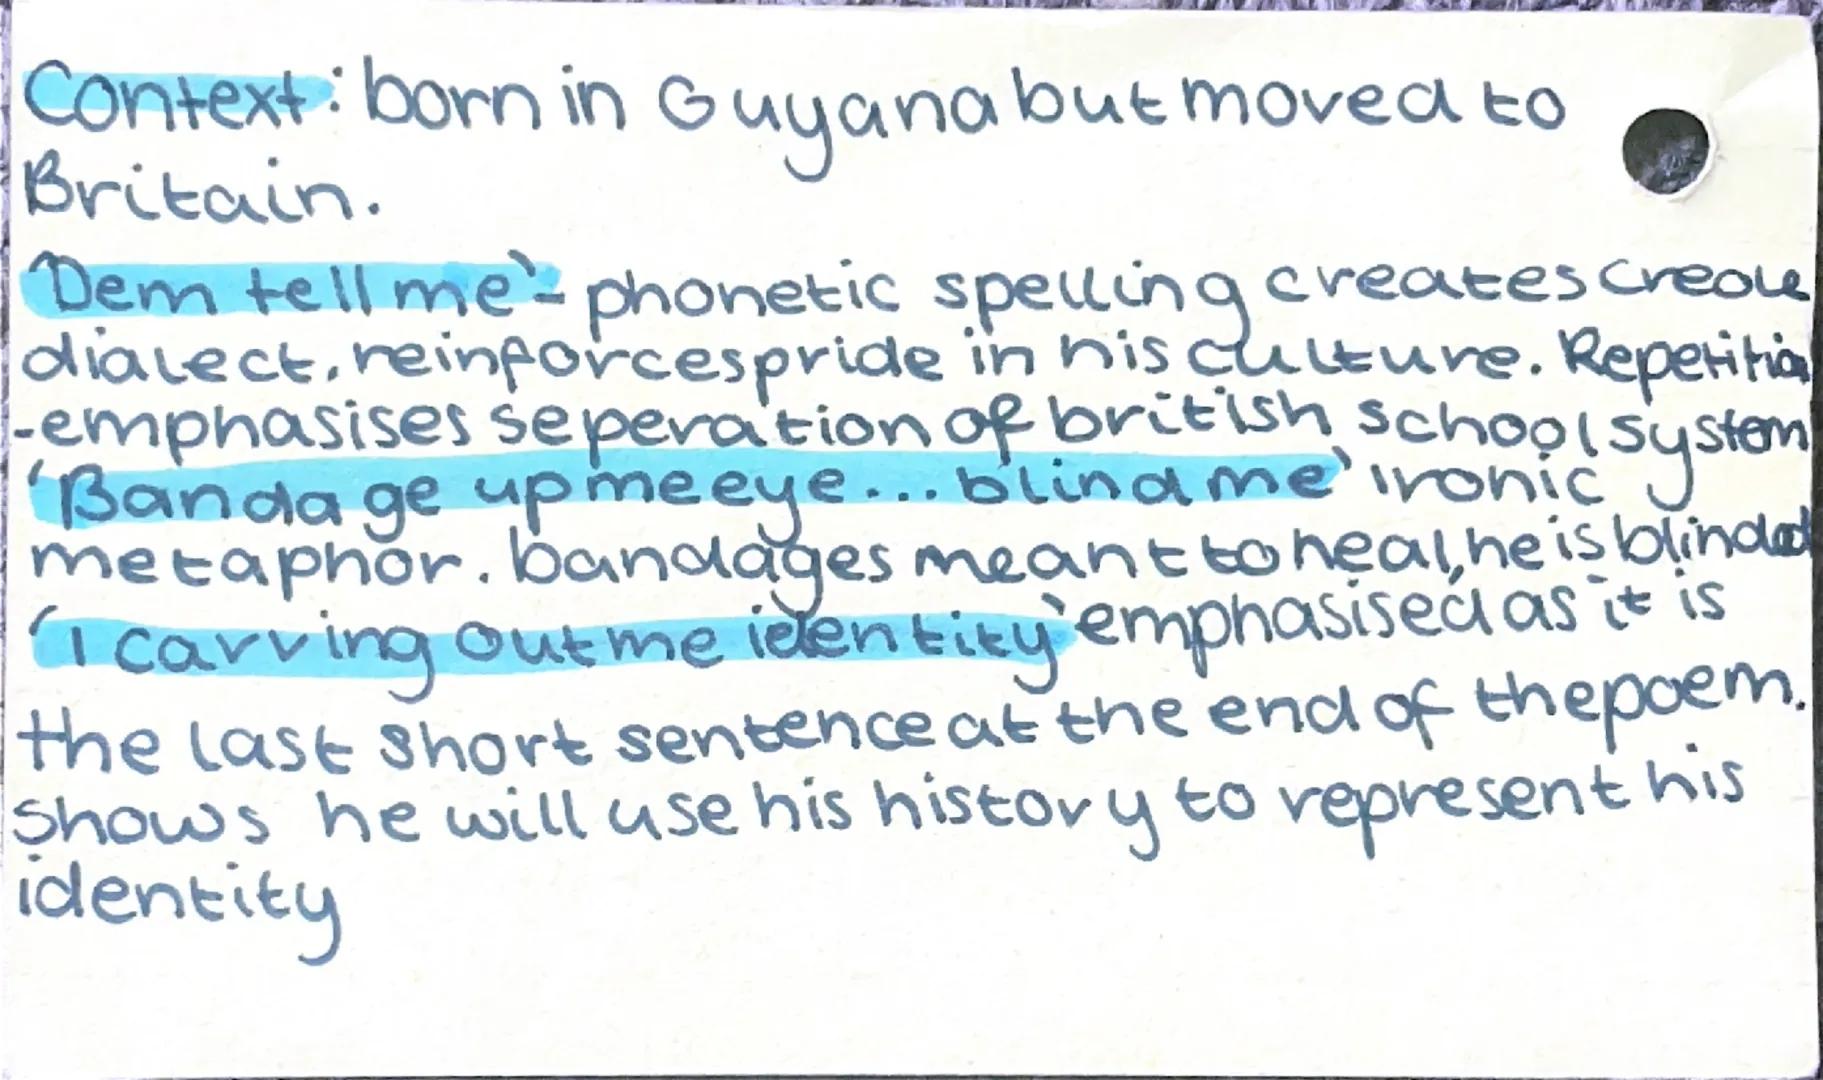 Context: born in Guyana but moved to
Britain.
'Dem tell me'- phonetic spelling creates creole
dialect, reinforces pride in his culture. Repetition
-emphasises seperation of british school system
'Bandage up me eye... blind me' ironic
metaphor. bandages meant to heal, he is blinded
'I carving out me identity' emphasised as it is
the last short sentence at the end of the poem.
shows he will use his history to represent his
identity